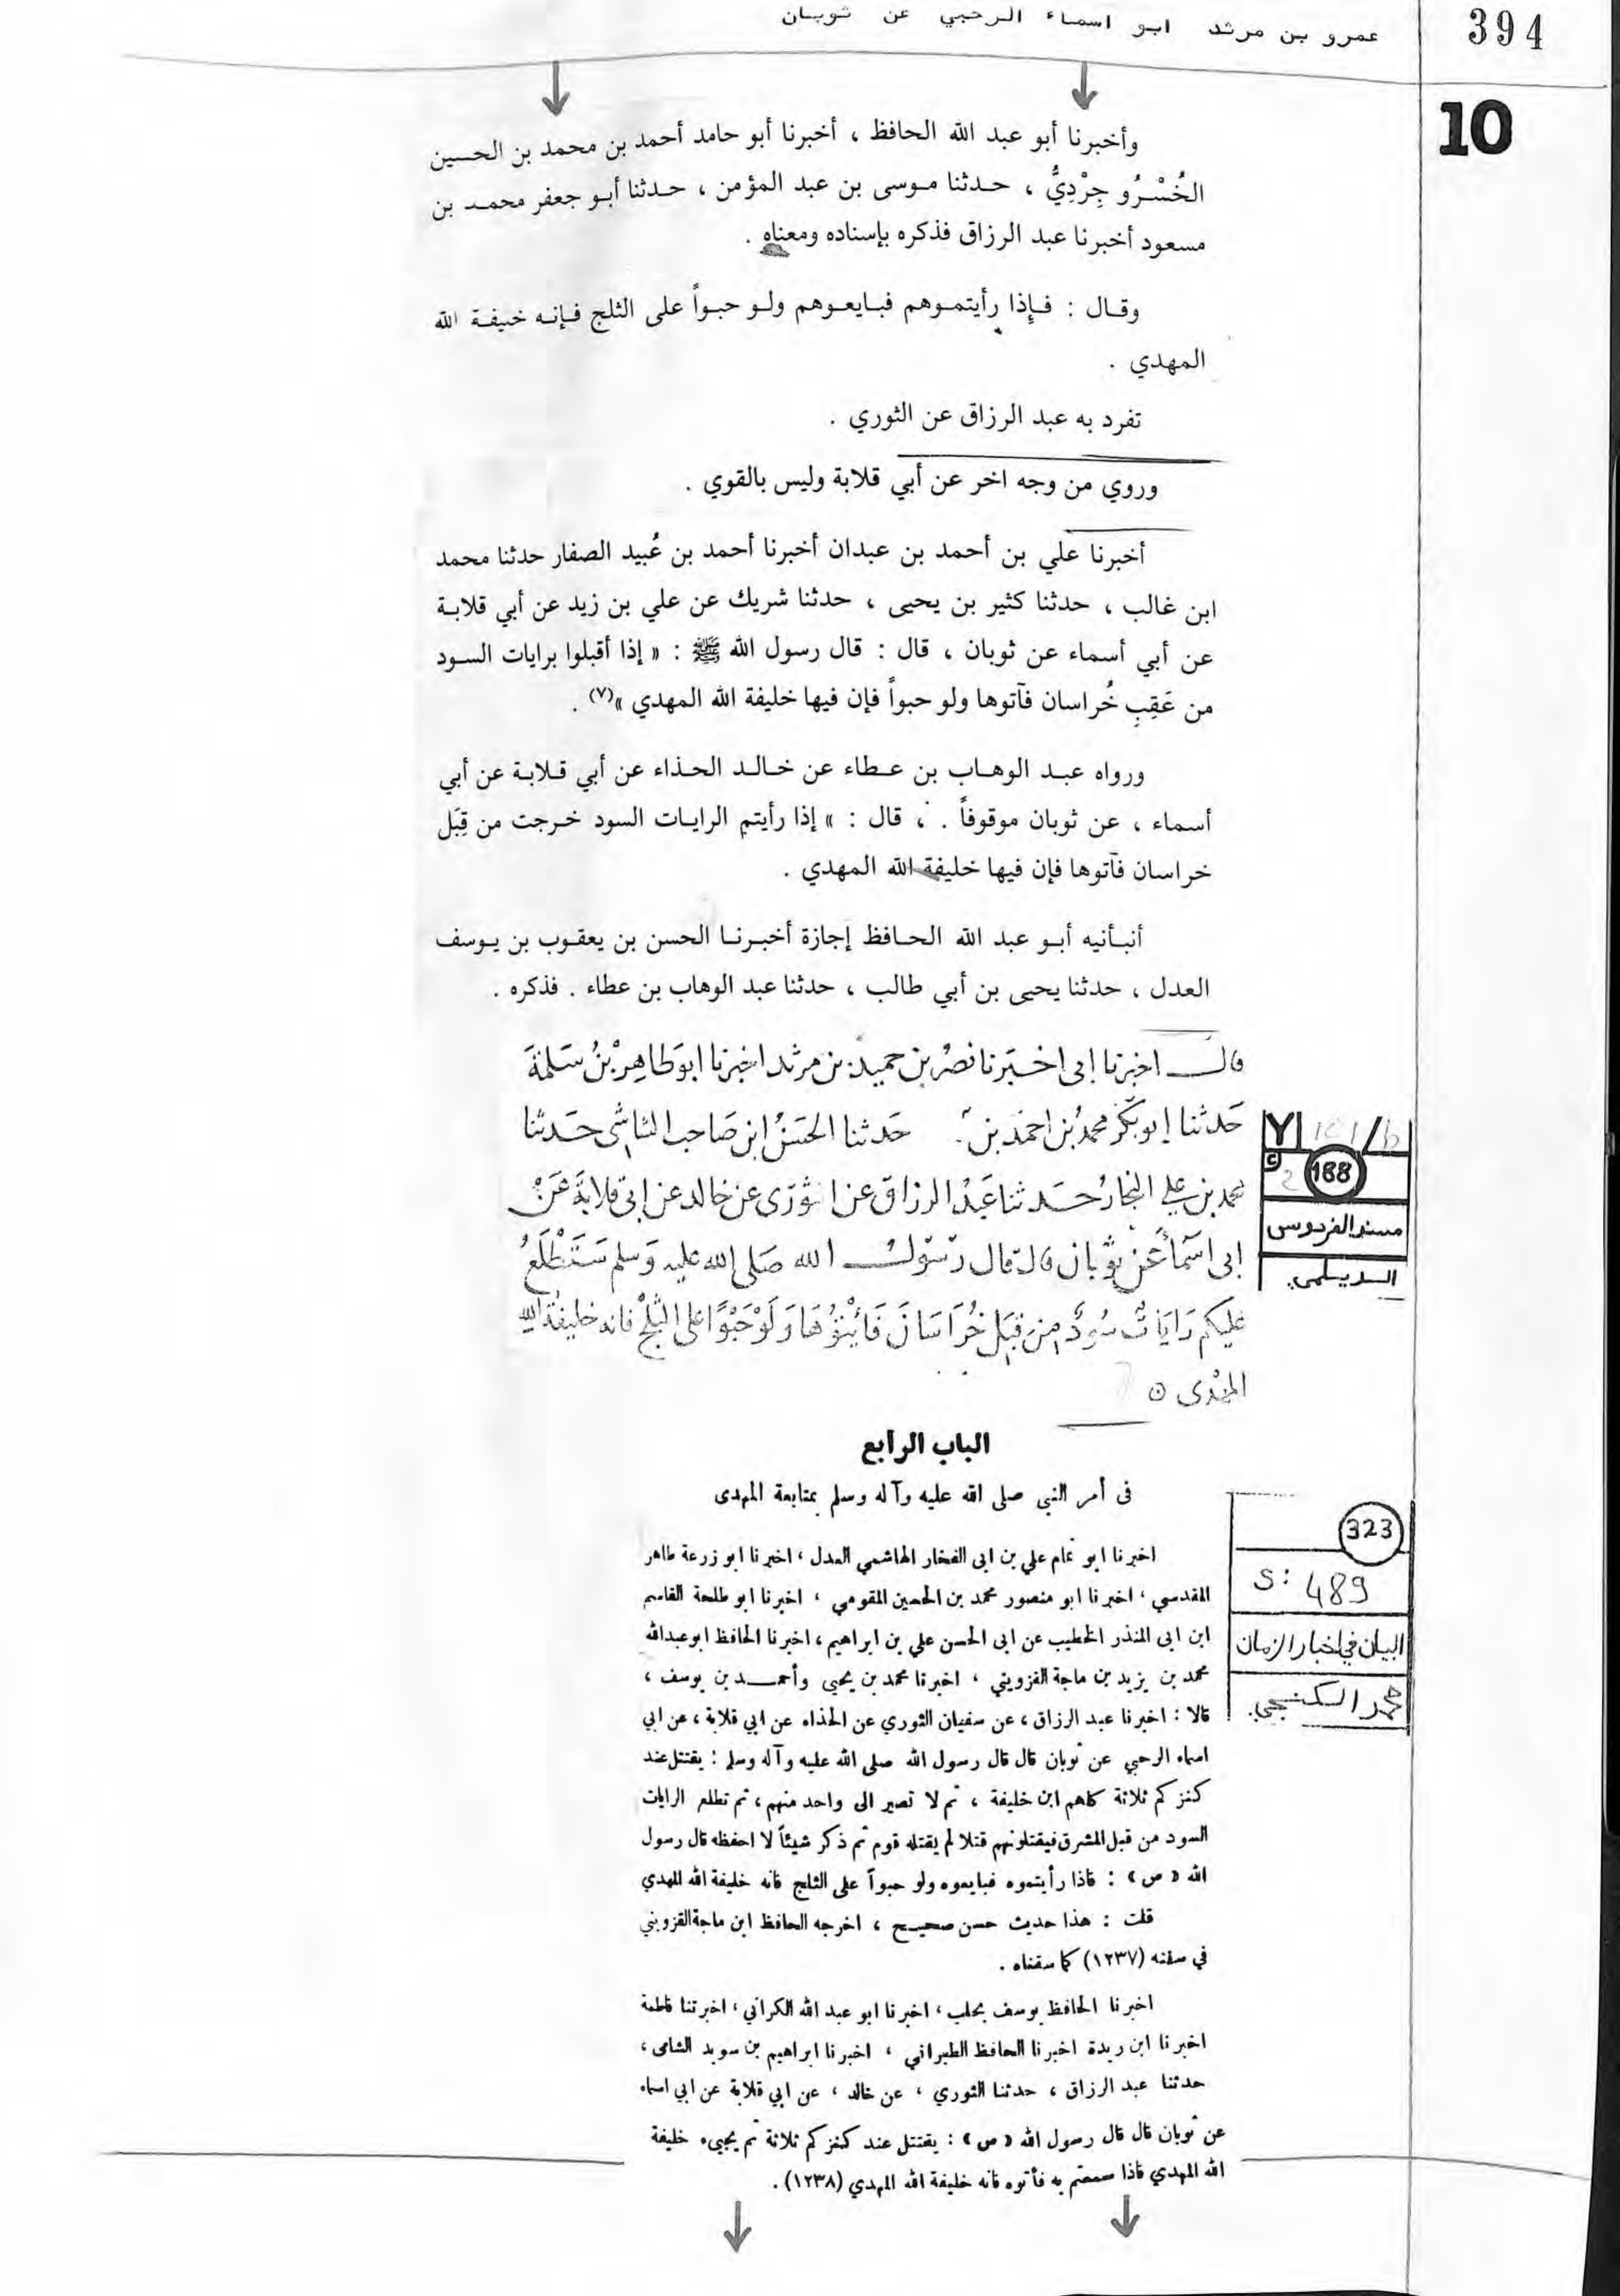 394
عمرو بن مرثد ابو اسماء الرحبي عن ثوبان
10
وأخبرنا أبو عبد الله الحافظ ، أخبرنا أبو حامد أحمد بن محمد بن الحسين
الخُسْرُو جِرْدِيُّ ، حدثنا موسى بن عبد المؤمن ، حدثنا أبو جعفر محمد بن
مسعود أخبرنا عبد الرزاق فذكره بإسناده ومعناه .
وقال : فإذا رأيتموهم فبايعوهم ولو حبواً على الثلج فإنه خليفة الله
المهدي .
تفرد به عبد الرزاق عن الثوري .
وروي من وجه اخر عن أبي قلابة وليس بالقوي .
أخبرنا علي بن أحمد بن عبدان أخبرنا أحمد بن عُبيد الصفار حدثنا محمد
ابن غالب ، حدثنا كثير بن يحيى ، حدثنا شريك عن علي بن زيد عن أبي قلابة
عن أبي أسماء عن ثوبان ، قال : قال رسول الله ﷺ : « إذا أقبلوا برايات السود
من عَقِبِ خُراسان فآتوها ولو حبواً فإن فيها خليفة الله المهدي »(٧) .
ورواه عبد الوهاب بن عطاء عن خالد الحذاء عن أبي قلابة عن أبي
أسماء ، عن ثوبان موقوفاً . ، قال : » إذا رأيتم الرايات السود خرجت من قِبَل
خراسان فآتوها فإن فيها خليفة الله المهدي .
أنبأنيه أبو عبد الله الحافظ إجازة أخبرنا الحسن بن يعقوب بن يوسف
العدل ، حدثنا يحيى بن أبي طالب ، حدثنا عبد الوهاب بن عطاء . فذكره .
قال اخبرنا ابى اخبَرنا نصرُ بن حميد بن مرثد اخبرنا ابوَطاهِر بْنُ سَلمَةَ
حَدثنا ابوبَكر محمدُ بن احمَد بن حَدثنا الحَسَنُ ابن صَاحب الشاشى حَدثنا
محمد بن علي النجار حَدثنا عَبْدُ الرزاق عن الثورى عن خالد عن ابى قلابَة عَنْ
ابى اسَماَ عَن ثوبان قال قال رَسُولُ الله صَلى الله عليه وَسلم سَتَطْلَعُ
عليكم رَايَاتٌ سُودٌ مِن قِبَل خُرَاسَانَ فَأتُوْهَا وَلَوْحَبْوًا على الثَلْج فانه خليفةُ الله
المهْدى ٥
188
مسند الفردوس
الديلمي.
الباب الرابع
فى أمر النبي صلى الله عليه وآله وسلم بمتابعة المهدى
323
S: 489
البيان في اخبار الزمان
محمد الكنجي.
اخبرنا ابو تمام علي بن ابى الفخار الهاشمي العدل ، اخبرنا ابو زرعة طاهر
المقدسي ، اخبرنا ابو منصور محمد بن الحسين المقومي ، اخبرنا ابو طلحة القاسم
ابن ابى المنذر الخطيب عن ابى الحسن علي بن ابراهيم ، اخبرنا الحافظ ابو عبدالله
محمد بن يزيد بن ماجة القزويني ، اخبرنا محمد بن يحيى وأحمد بن يوسف ،
قالا : اخبرنا عبد الرزاق ، عن سفيان الثوري عن الحذاء عن ابي قلابة ، عن ابي
اسماء الرحبي عن ثوبان قال قال رسول الله صلى الله عليه وآله وسلم : يقتتل عند
كنزكم ثلاثة كلهم ابن خليفة ، ثم لا تصير الى واحد منهم ، ثم تطلع الرايات
السود من قبل المشرق فيقتلونهم قتلا لم يقتله قوم ثم ذكر شيئاً لا احفظه قال رسول
الله « ص » : فاذا رأيتموه فبايعوه ولو حبواً على الثلج فانه خليفة الله المهدي
قلت : هذا حديث حسن صحيح ، اخرجه الحافظ ابن ماجة القزويني
في سننه (١٢٣٧) كما سقناه .
اخبرنا الحافظ يوسف بحلب ، اخبرنا ابو عبد الله الكراني ، اخبرتنا فاطمة
اخبرنا ابن ريدة اخبرنا الحافظ الطبراني ، اخبرنا ابراهيم بن سويد الشامى ،
حدثنا عبد الرزاق ، حدثنا الثوري ، عن خالد ، عن ابي قلابة عن ابي اسماء
عن ثوبان قال قال رسول الله « ص » : يقتتل عند كنزكم ثلاثة ثم يجيىء خليفة
الله المهدي فاذا سمعتم به فأتوه فانه خليفة الله المهدي (١٢٣٨) .